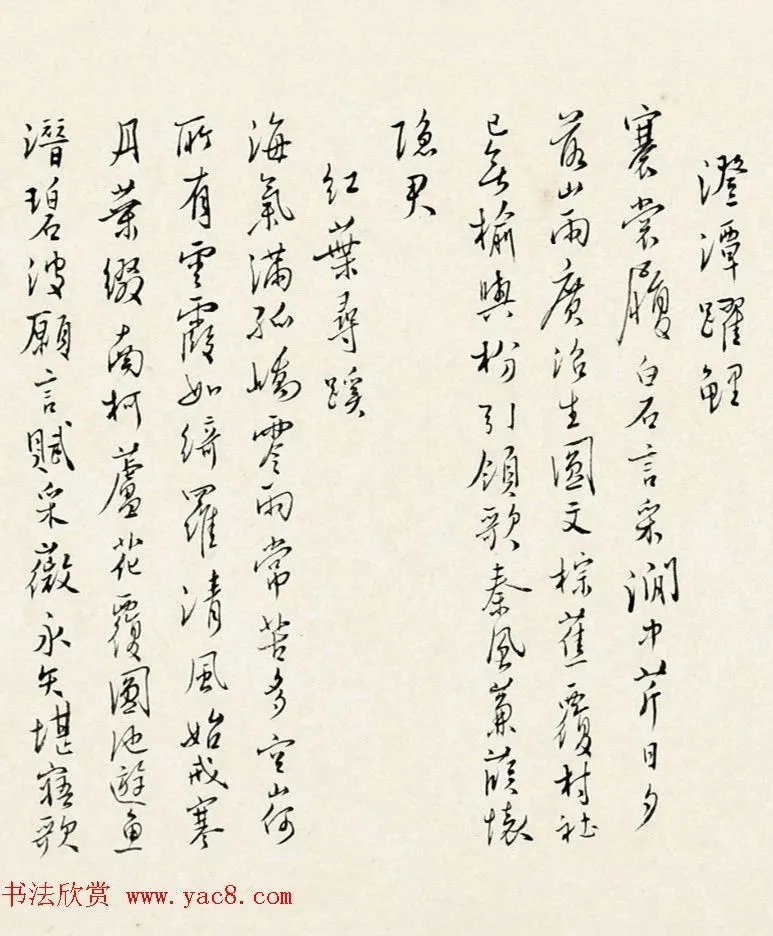 澄潭躍鯉
褰裳履白石言采澗中芹日夕
落山雨廣沼生圓文棕蕉覆村社
已無榆與枌引領歌秦風蒹葭懷
隱君
紅葉尋蹊
海氣滿孤嶠零雨常苦多空山何
所有雲霞如綺羅清風始戒寒
丹葉綴南柯蘆花覆圓池遊魚
潛碧波願言賦采薇永矢堪寤歌
书法欣赏 www.yac8.com